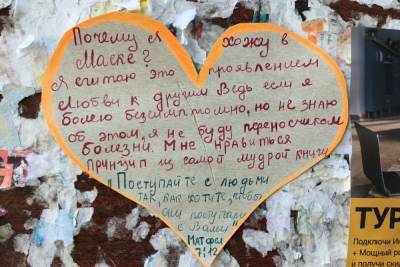 Почему я хожу в
Маске?
Я считаю это проявлением
любви к другим. Ведь если я
болею безсимптомно, но не знаю
об этом, я не буду переносчиком
болезни. Мне нравиться
принцип из самой мудрой книги
"Поступайте с людьми
так, как хотите, чтобы
они поступали
с Вами"
Матфея
7:12
ТУР
Подключи Ин
+ Мощный ро
и получи ски